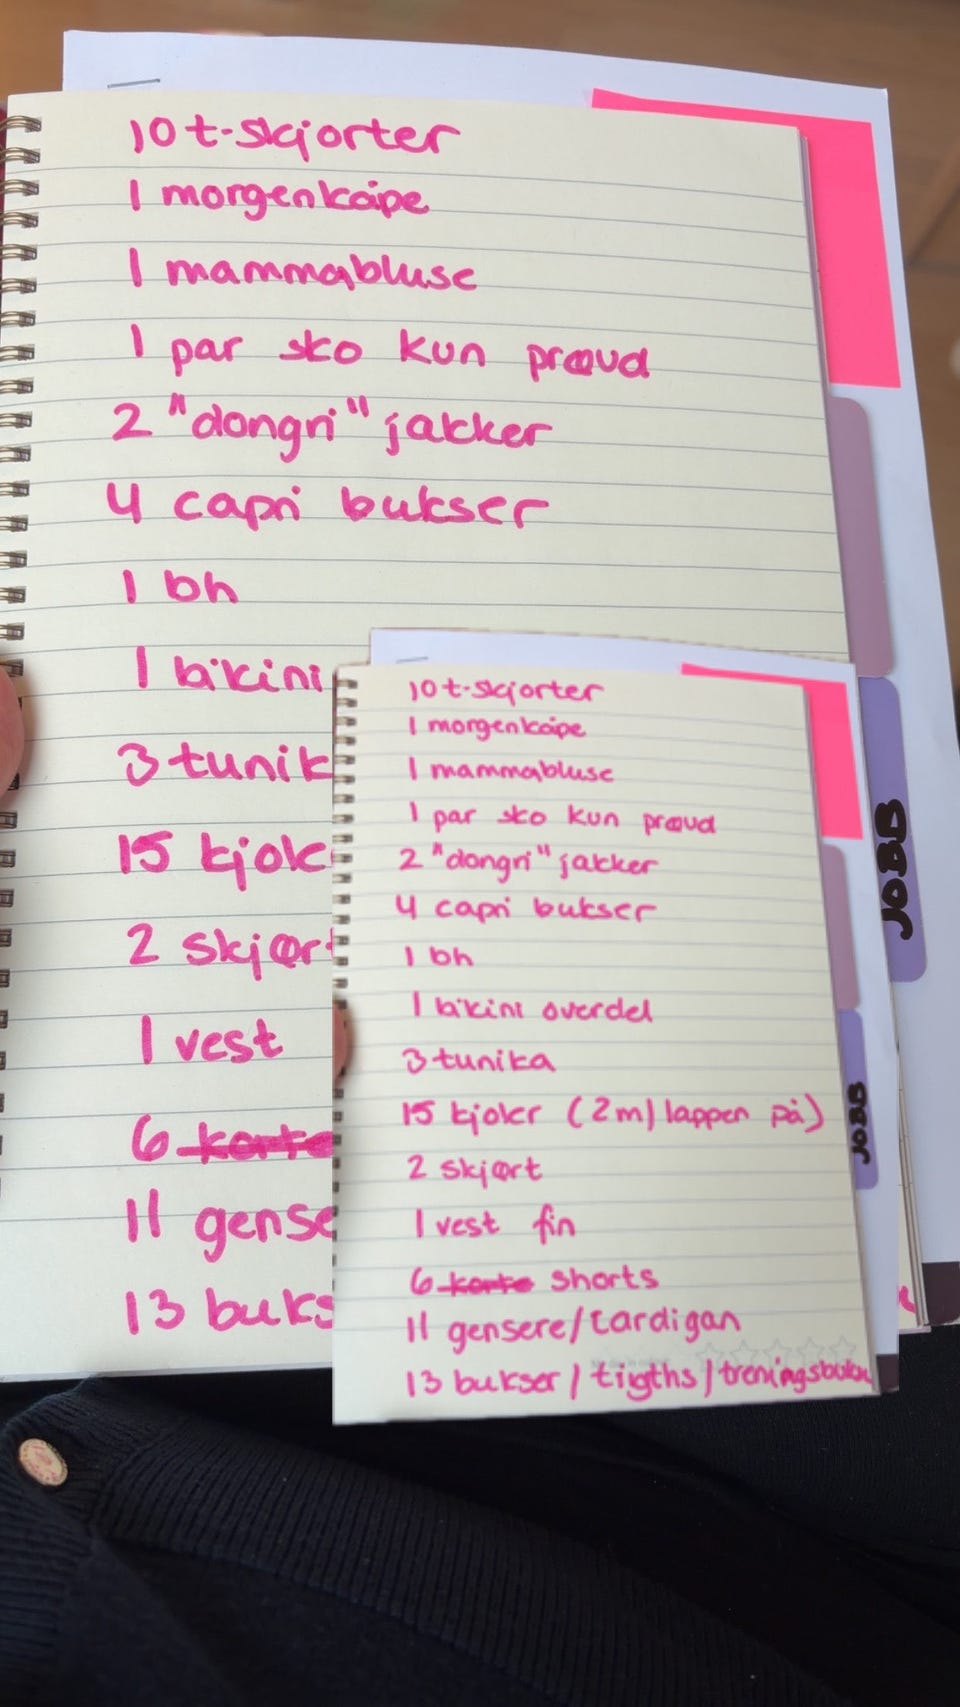 10 t-skjorter
1 morgenkåpe
1 mammabluse
1 par sko kun prøvd
2 "dongri" jakker
4 capri bukser
1 bh
1 bikini
3 tunik
15 kjole
2 skjørt
1 vest
6 korte
11 gense
13 buks
JOBB
10 t-skjorter
1 morgenkåpe
1 mammabluse
1 par sko kun prøvd
2 "dongri" jakker
4 capri bukser
1 bh
1 bikini overdel
3 tunika
15 kjoler (2 m/lappen på)
2 skjørt
1 vest fin
6 korte shorts
11 gensere/cardigan
13 bukser/tigths/treningsbukse
JOBB